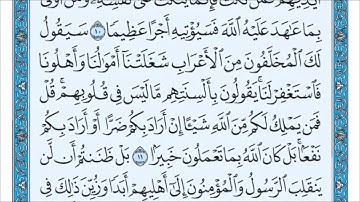 أَيْدِيهِمْ فَمَن نَّكَثَ فَإِنَّمَا يَنكُثُ عَلَىٰ نَفْسِهِۦ وَمَنْ أَوْفَىٰ
بِمَا عَٰهَدَ عَلَيْهُ ٱللَّهَ فَسَيُؤْتِيهِ أَجْرًا عَظِيمًا ١٠ سَيَقُولُ
لَكَ ٱلْمُخَلَّفُونَ مِنَ ٱلْأَعْرَابِ شَغَلَتْنَآ أَمْوَٰلُنَا وَأَهْلُونَا
فَٱسْتَغْفِرْ لَنَا ۚ يَقُولُونَ بِأَلْسِنَتِهِم مَّا لَيْسَ فِى قُلُوبِهِمْ ۚ قُلْ
فَمَن يَمْلِكُ لَكُم مِّنَ ٱللَّهِ شَيْـًٔا إِنْ أَرَادَ بِكُمْ ضَرًّا أَوْ أَرَادَ بِكُمْ
نَفْعًۢا ۚ بَلْ كَانَ ٱللَّهُ بِمَا تَعْمَلُونَ خَبِيرًۢا ١١ بَلْ ظَنَنتُمْ أَن لَّن
يَنقَلِبَ ٱلرَّسُولُ وَٱلْمُؤْمِنُونَ إِلَىٰٓ أَهْلِيهِمْ أَبَدًا وَزُيِّنَ ذَٰلِكَ فِى